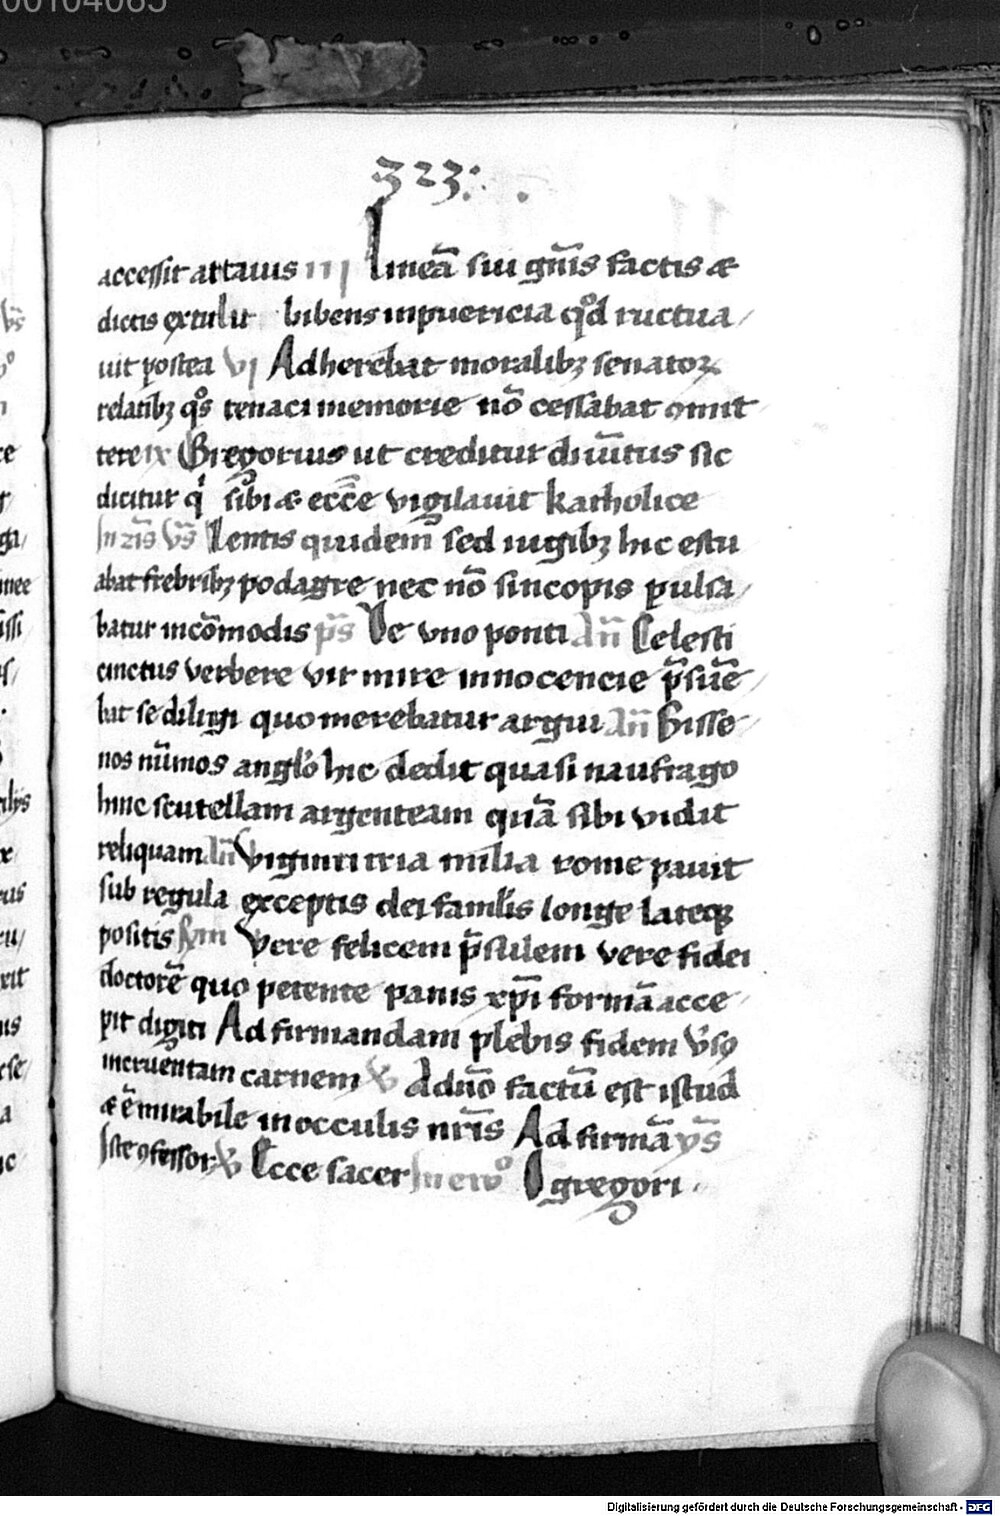 00104065
323:
accessit attauus III Lineā sui gn̄is factis &
dictis extulit bibens in puericia qͦd ructua/
uit postea VI Adherebat moralibꝫ senatoꝝ
relatibꝫ qͦs tenaci memorie nō cessabat ꝯmit
tere IX Gregorius ut creditur diuītus sic
dicitur qⁱ sibi & ecc̄e vigilauit katholice
In Lentis quidem sed iugibꝫ hic estu
abat frebribꝫ podagre nec nō sincopis pulsa/
batur incōmodis p̄s De vno ponti An̄ Celesti
cinctus verbere vir mire innocencie p̄suē/
bat se diligi quo merebatur argui An̄ Bisse
nos nūmos anglo hic dedit quasi naufrago
hinc scutellam argenteam quā sibi vidit
reliquam An̄ Viginti tria milia rome pauit
sub regula exceptis dei famlis longe lateqꝫ
positis Sym Vere felicem p̄sulem vere fidei
doctorē quo petente panis xp̄i formā acce/
pit digiti Ad firmandam plebis fidem
incruentam carnem ℣ A dn̄o factū est istud
& ē mirabile in occulis nr̄is Ad firmā ys̄
Iste ꝯfessor ℣ Ecce sacer In O gregori
Digitalisierung gefördert durch die Deutsche Forschungsgemeinschaft - DFG